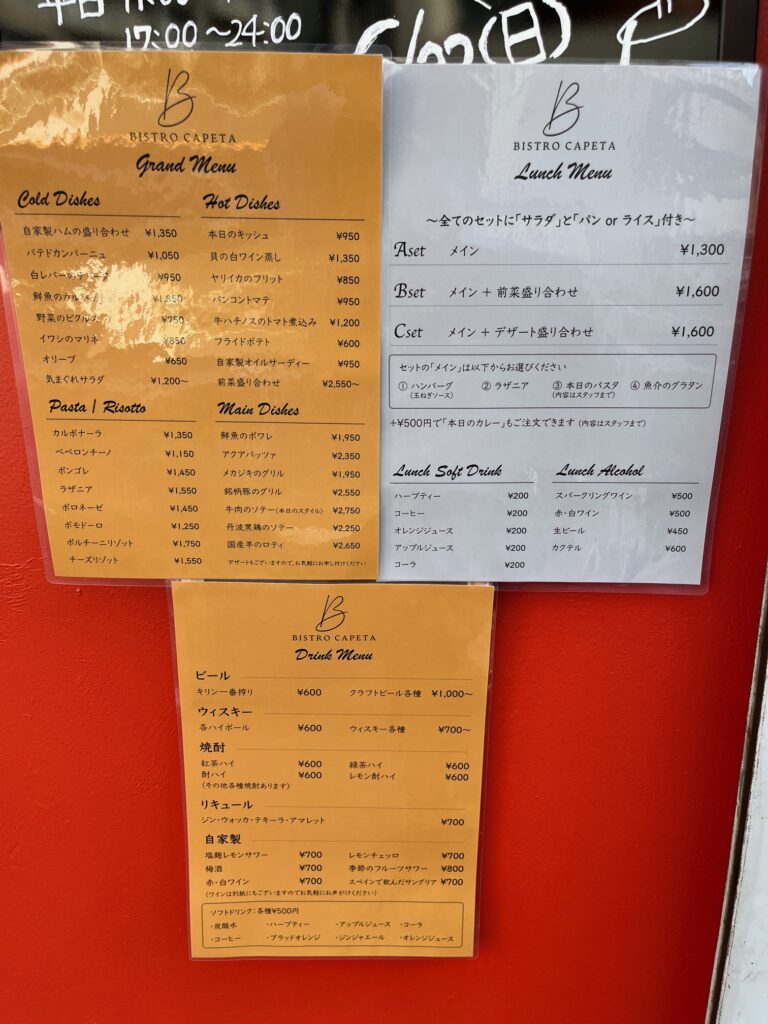 17:00〜24:00
(日)
B
BISTRO CAPETA
Grand Menu
Cold Dishes
自家製ハムの盛り合わせ ¥1,350
パテドカンパーニュ ¥1,050
白レバーの ¥950
鮮魚のカル
野菜のピクルス ¥750
イワシのマリネ ¥850
オリーブ ¥650
気まぐれサラダ ¥1,200〜
Hot Dishes
本日のキッシュ ¥950
貝の白ワイン蒸し ¥1,350
ヤリイカのフリット ¥850
パンコントマテ ¥950
牛ハチノスのトマト煮込み ¥1,200
フライドポテト ¥600
自家製オイルサーディー ¥950
前菜盛り合わせ ¥2,550〜
Pasta / Risotto
カルボナーラ ¥1,350
ペペロンチーノ ¥1,150
ボンゴレ ¥1,450
ラザニア ¥1,550
ボロネーゼ ¥1,450
ポモドーロ ¥1,250
ポルチーニリゾット ¥1,750
チーズリゾット ¥1,550
Main Dishes
鮮魚のポワレ ¥1,950
アクアパッツァ ¥2,350
メカジキのグリル ¥1,950
銘柄豚のグリル ¥2,550
牛肉のソテー(本日のスタイル) ¥2,750
丹波黒鶏のソテー ¥2,250
国産羊のロティ ¥2,650
デザートもございますので、お気軽にお申し付けください
B
BISTRO CAPETA
Lunch Menu
〜全てのセットに「サラダ」と「パン or ライス」付き〜
Aset メイン ¥1,300
Bset メイン + 前菜盛り合わせ ¥1,600
Cset メイン + デザート盛り合わせ ¥1,600
セットの「メイン」は以下からお選びください
① ハンバーグ ② ラザニア ③ 本日のパスタ ④ 魚介のグラタン
(玉ねぎソース) (内容はスタッフまで)
+¥500円で「本日のカレー」もご注文できます (内容はスタッフまで)
Lunch Soft Drink
ハーブティー ¥200
コーヒー ¥200
オレンジジュース ¥200
アップルジュース ¥200
コーラ ¥200
Lunch Alcohol
スパークリングワイン ¥500
赤・白ワイン ¥500
生ビール ¥450
カクテル ¥600
B
BISTRO CAPETA
Drink Menu
ビール
キリン一番搾り ¥600 クラフトビール各種 ¥1,000〜
ウィスキー
各ハイボール ¥600 ウィスキー各種 ¥700〜
焼酎
紅茶ハイ ¥600 緑茶ハイ ¥600
酎ハイ ¥600 レモン酎ハイ ¥600
(その他各種焼酎あります)
リキュール
ジン・ウォッカ・テキーラ・アマレット ¥700
自家製
塩麹レモンサワー ¥700 レモンチェッロ ¥700
梅酒 ¥700 季節のフルーツサワー ¥800
赤・白ワイン ¥700 スペインで飲んだサングリア ¥700
(ワインは別紙にもございますのでお気軽にお声がけください)
ソフトドリンク:各種¥500円
・炭酸水 ・ハーブティー ・アップルジュース ・コーラ
・コーヒー ・ブラッドオレンジ ・ジンジャエール ・オレンジジュース